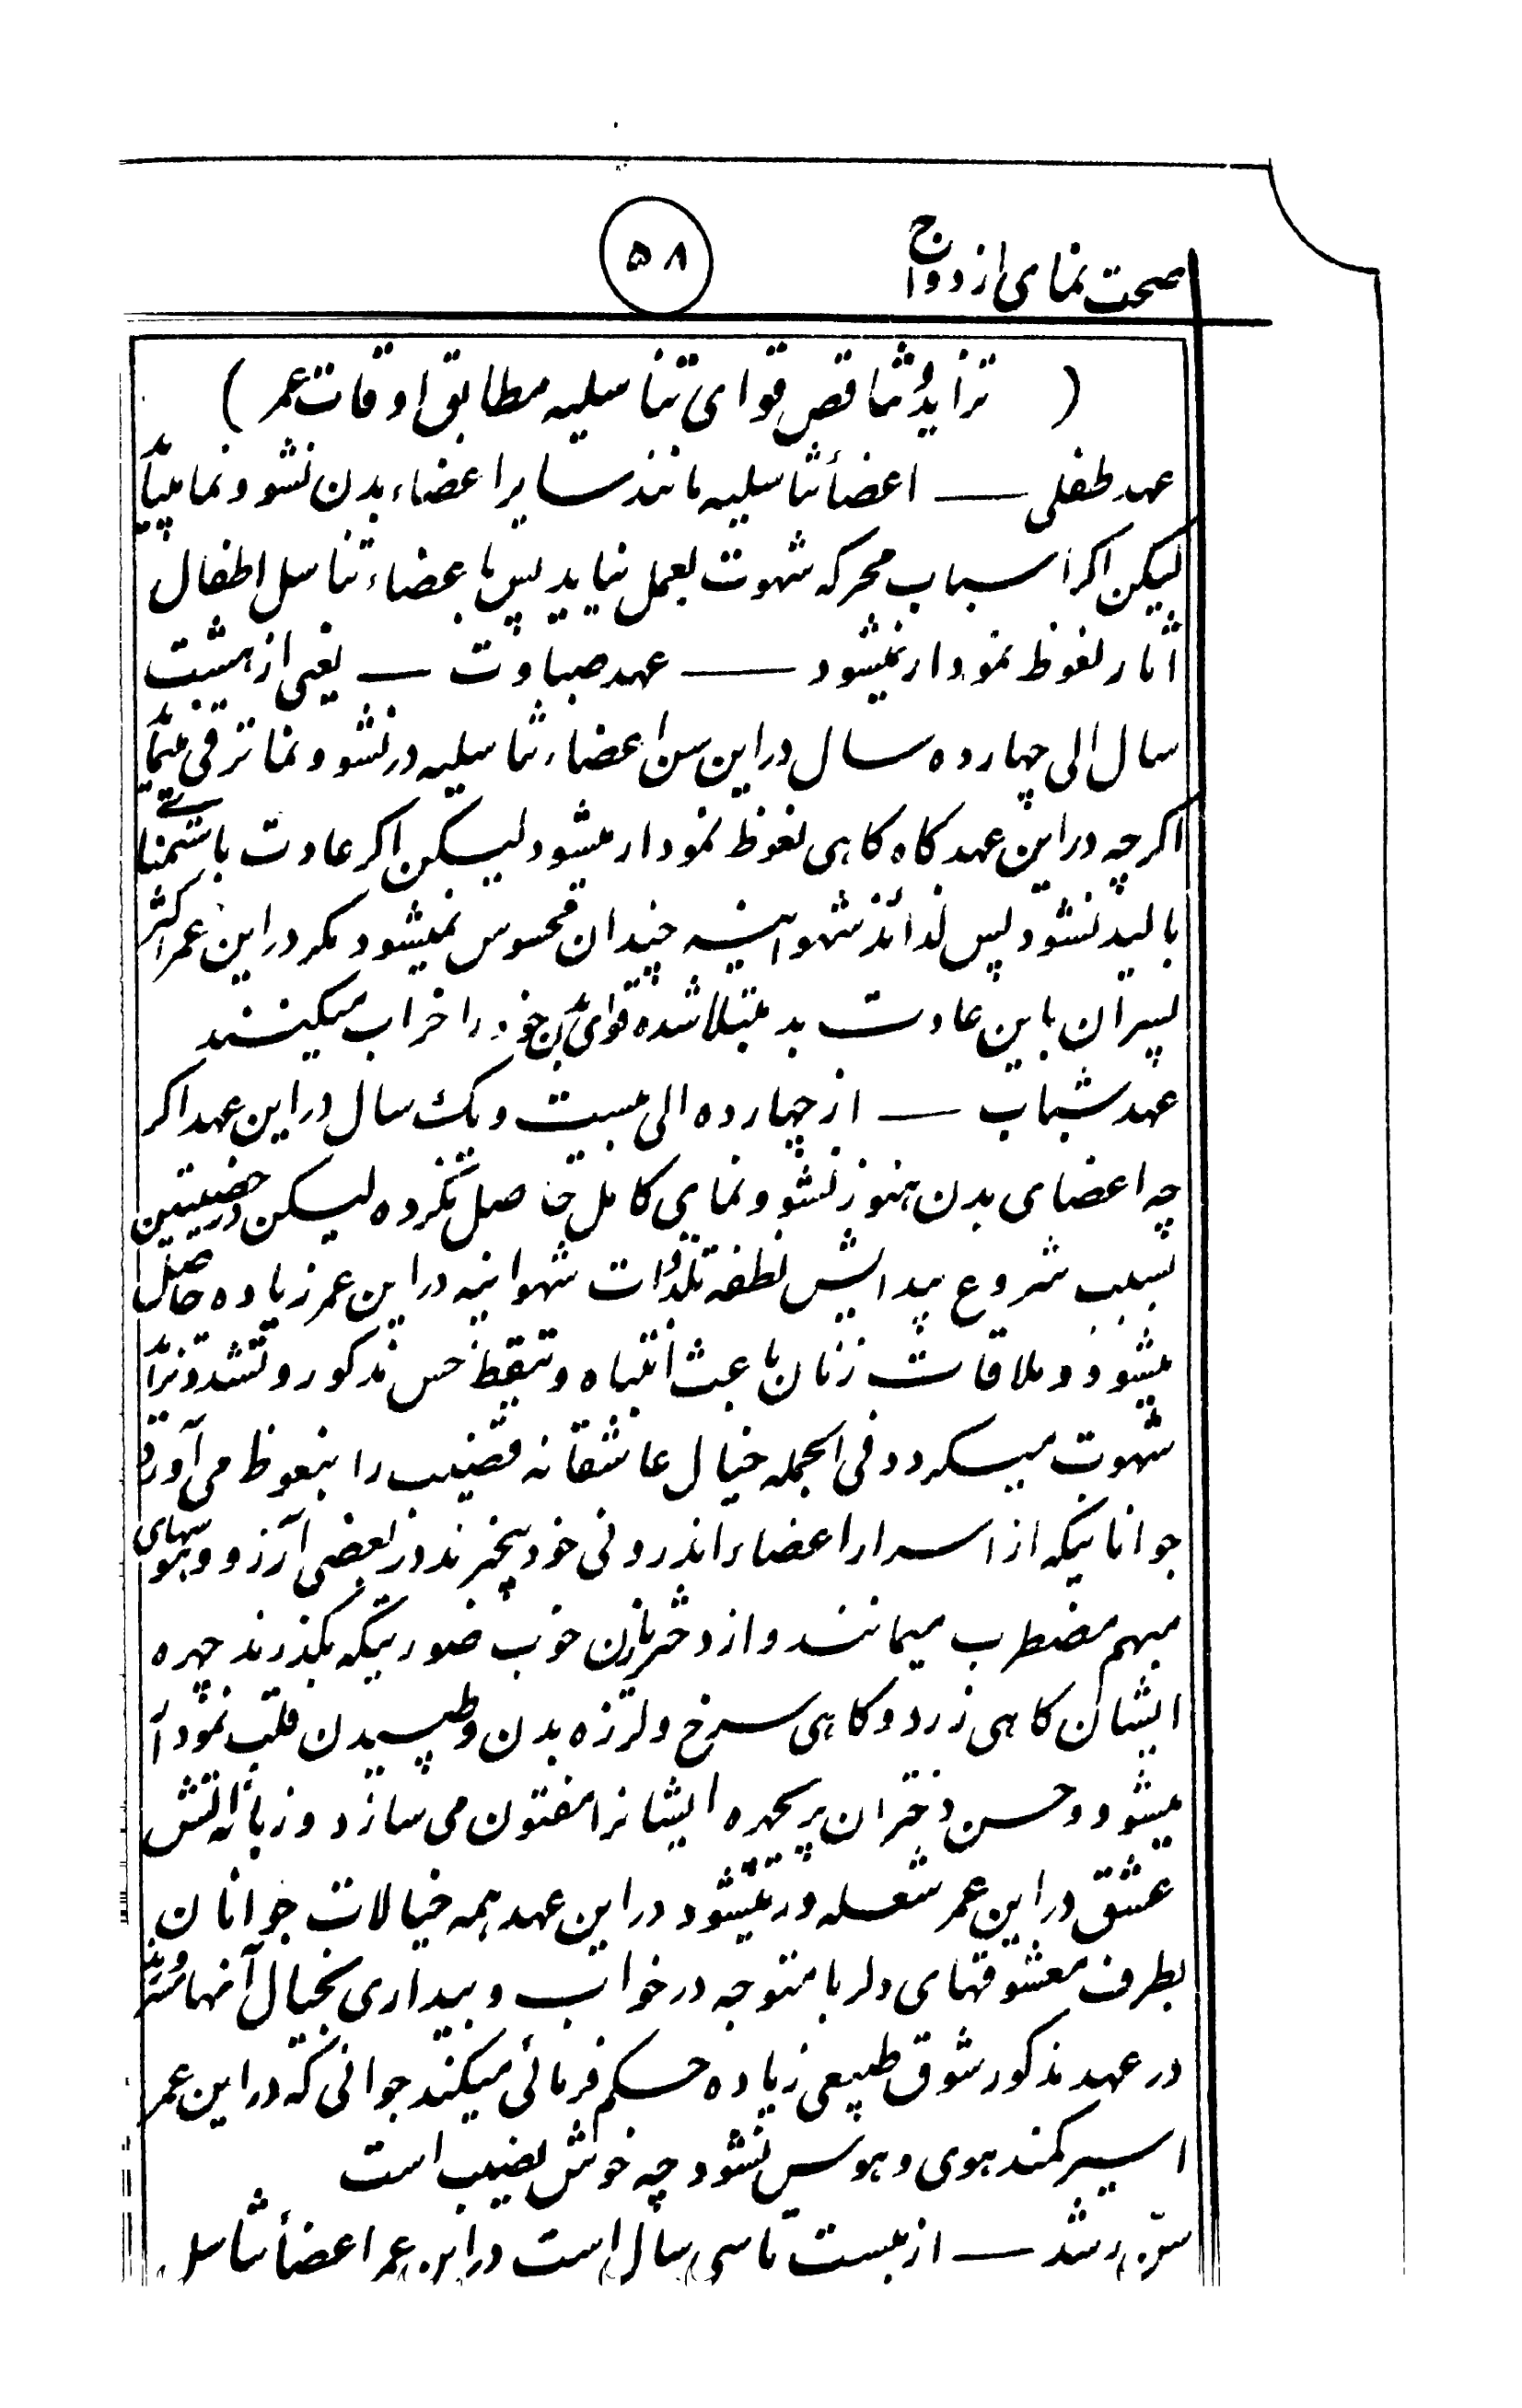 صحت نمای ازدواج
۵۸
( تزاید و تناقص قوای تناسلیه مطابق اوقات عمر )
عهد طفلی — اعضأ تناسلیه مانند سایر اعضاء بدن نشو و نما میابد
لیکن اکر اسباب محرکه شهوت بعمل نیاید پس باعضاء تناسل اطفال
آثار نعوظ نمودار نمیشود — عهد صباوت — یعنی از هشت
سال الی چهارده سال در این سن اعضاء تناسلیه در نشو و نما ترقی مینماید
اکرچه در این عهد کاه کاهی نعوظ نمودار میشود لیکن اکر عادت باستمنای
بالید نشود پس لذائذ شهوانیه چندان محسوس نمیشود مکر در این عمر اکثر
پسران باین عادت بد مبتلا شده قوای بدن خود را خراب میکنند
عهد شباب — از چهارده الی بیست و یک سال در این عهد اکر
چه اعضای بدن هنوز نشو و نمای کامل حاصل نکرده لیکن در خصیتین
بسبب شروع پیدایش نطفه تلذذات شهوانیه در این عمر زیاده حاصل
میشود و ملاقات زنان باعث انتباه و تیقظ حس مذکور و تشدد نیران
شهوت میکردد فی الجمله خیال عاشقانه قضیب را بنعوظ می آورد
جوانانیکه از اسرار اعضاء اندرونی خود بیخبرند در بعضی آرزو و هوسهای
مبهم مضطرب میمانند و از دختر یا زن خوب صورتیکه بکذرند چهره
ایشان کاهی زرد و کاهی سرخ و لرزه بدن و طپیدن قلب نمودار
میشود و حسن دختران پریچهره ایشانرا مفتون می سازد و زبانه آتش
عشق در این عمر شعله ور میشود در این عهد همه خیالات جوانان
بطرف معشوقهای دلربا متوجه در خواب و بیداری بخیال آنها
در عهد مذکور شوق طبیعی زیاده حکم فرمائی میکند جوانی که در این عمر
اسیر کمند هوی و هوس نشود چه خوش نصیب است
سن رشد — از بیست تا سی سال است در این عمر اعضأ تناسل